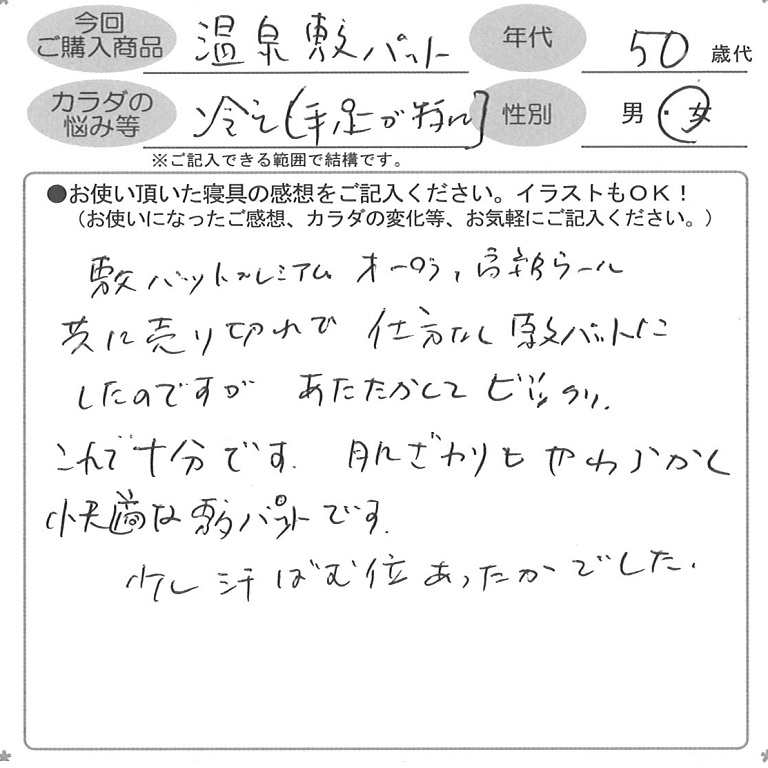 今回
ご購入商品
温泉敷パット
年代
50歳代
カラダの
悩み等
冷え(手足が特に)
性別
男・女
※ご記入できる範囲で結構です。
●お使い頂いた寝具の感想をご記入ください。イラストもOK!
(お使いになったご感想、カラダの変化等、お気軽にご記入ください。)
敷パットプレミアム オーロラ、
共に売り切れで 仕方なし敷パットに
したのですが あたたかくて ビックリ.
これで十分です. 肌ざわりも やわらかく
快適な敷パットです.
少し汗ばむ位あったかでした.